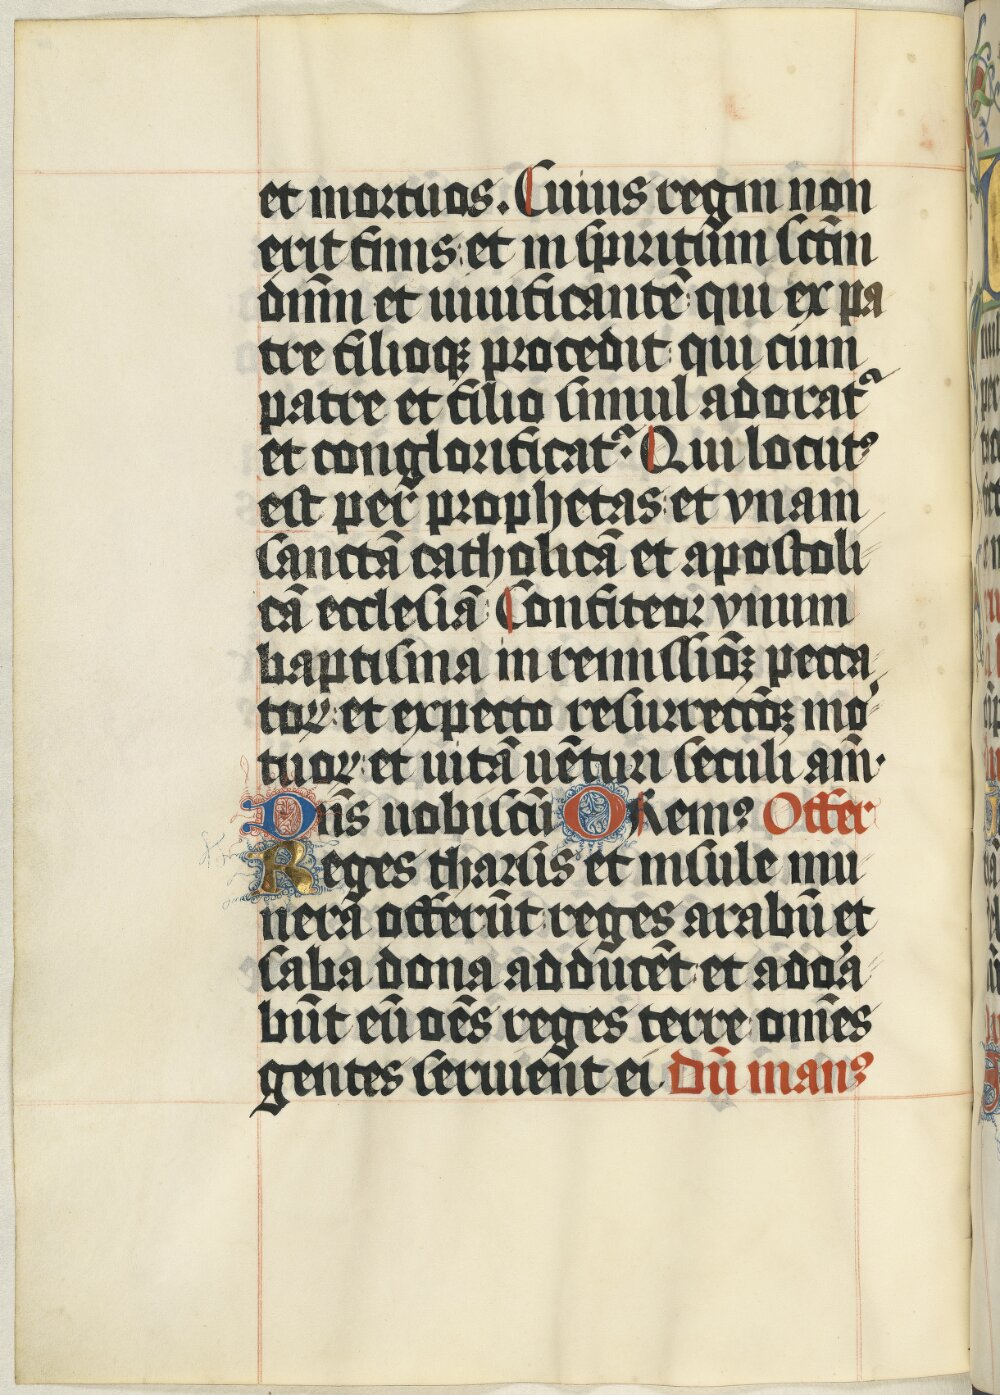 et mortuos. Cuius regni non
erit finis: et in spiritum sctm̄
dnm̄ et uiuificantē: qui ex pa
tre filioqꝫ procedit: qui cum
patre et filio simul adorat᷑
et conglorificat᷑. Qui locutꝰ
est per prophetas: et vnam
sanctā catholicā et apostoli
cā ecclesiā. Confiteor vnum
baptisma in remissioēꝫ pecca
toꝝ: et expecto resurrectōꝫ mo
tuoꝝ: et uitā uēturi seculi am̄.
Dn̄s uobiscū Oremꝰ Offer
Reges tharsis et insule mu
nera offerūt: reges arabū et
saba dona adducēt: et adora
būt eū oēs reges terre: omēs
gentes seruient ei. Dū manꝰ